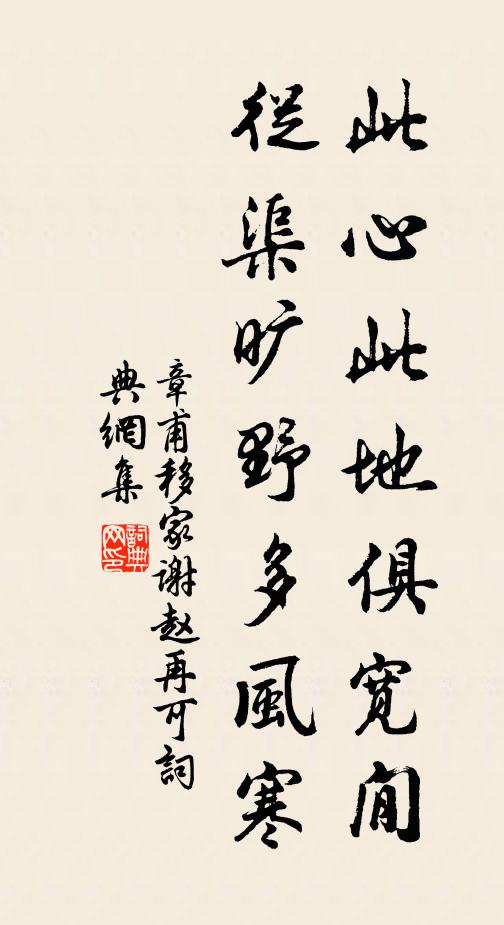 此心此地俱寬閒
從渠旷野多風寒
章甫移家谢赵再可詞
典網集
詞典网印